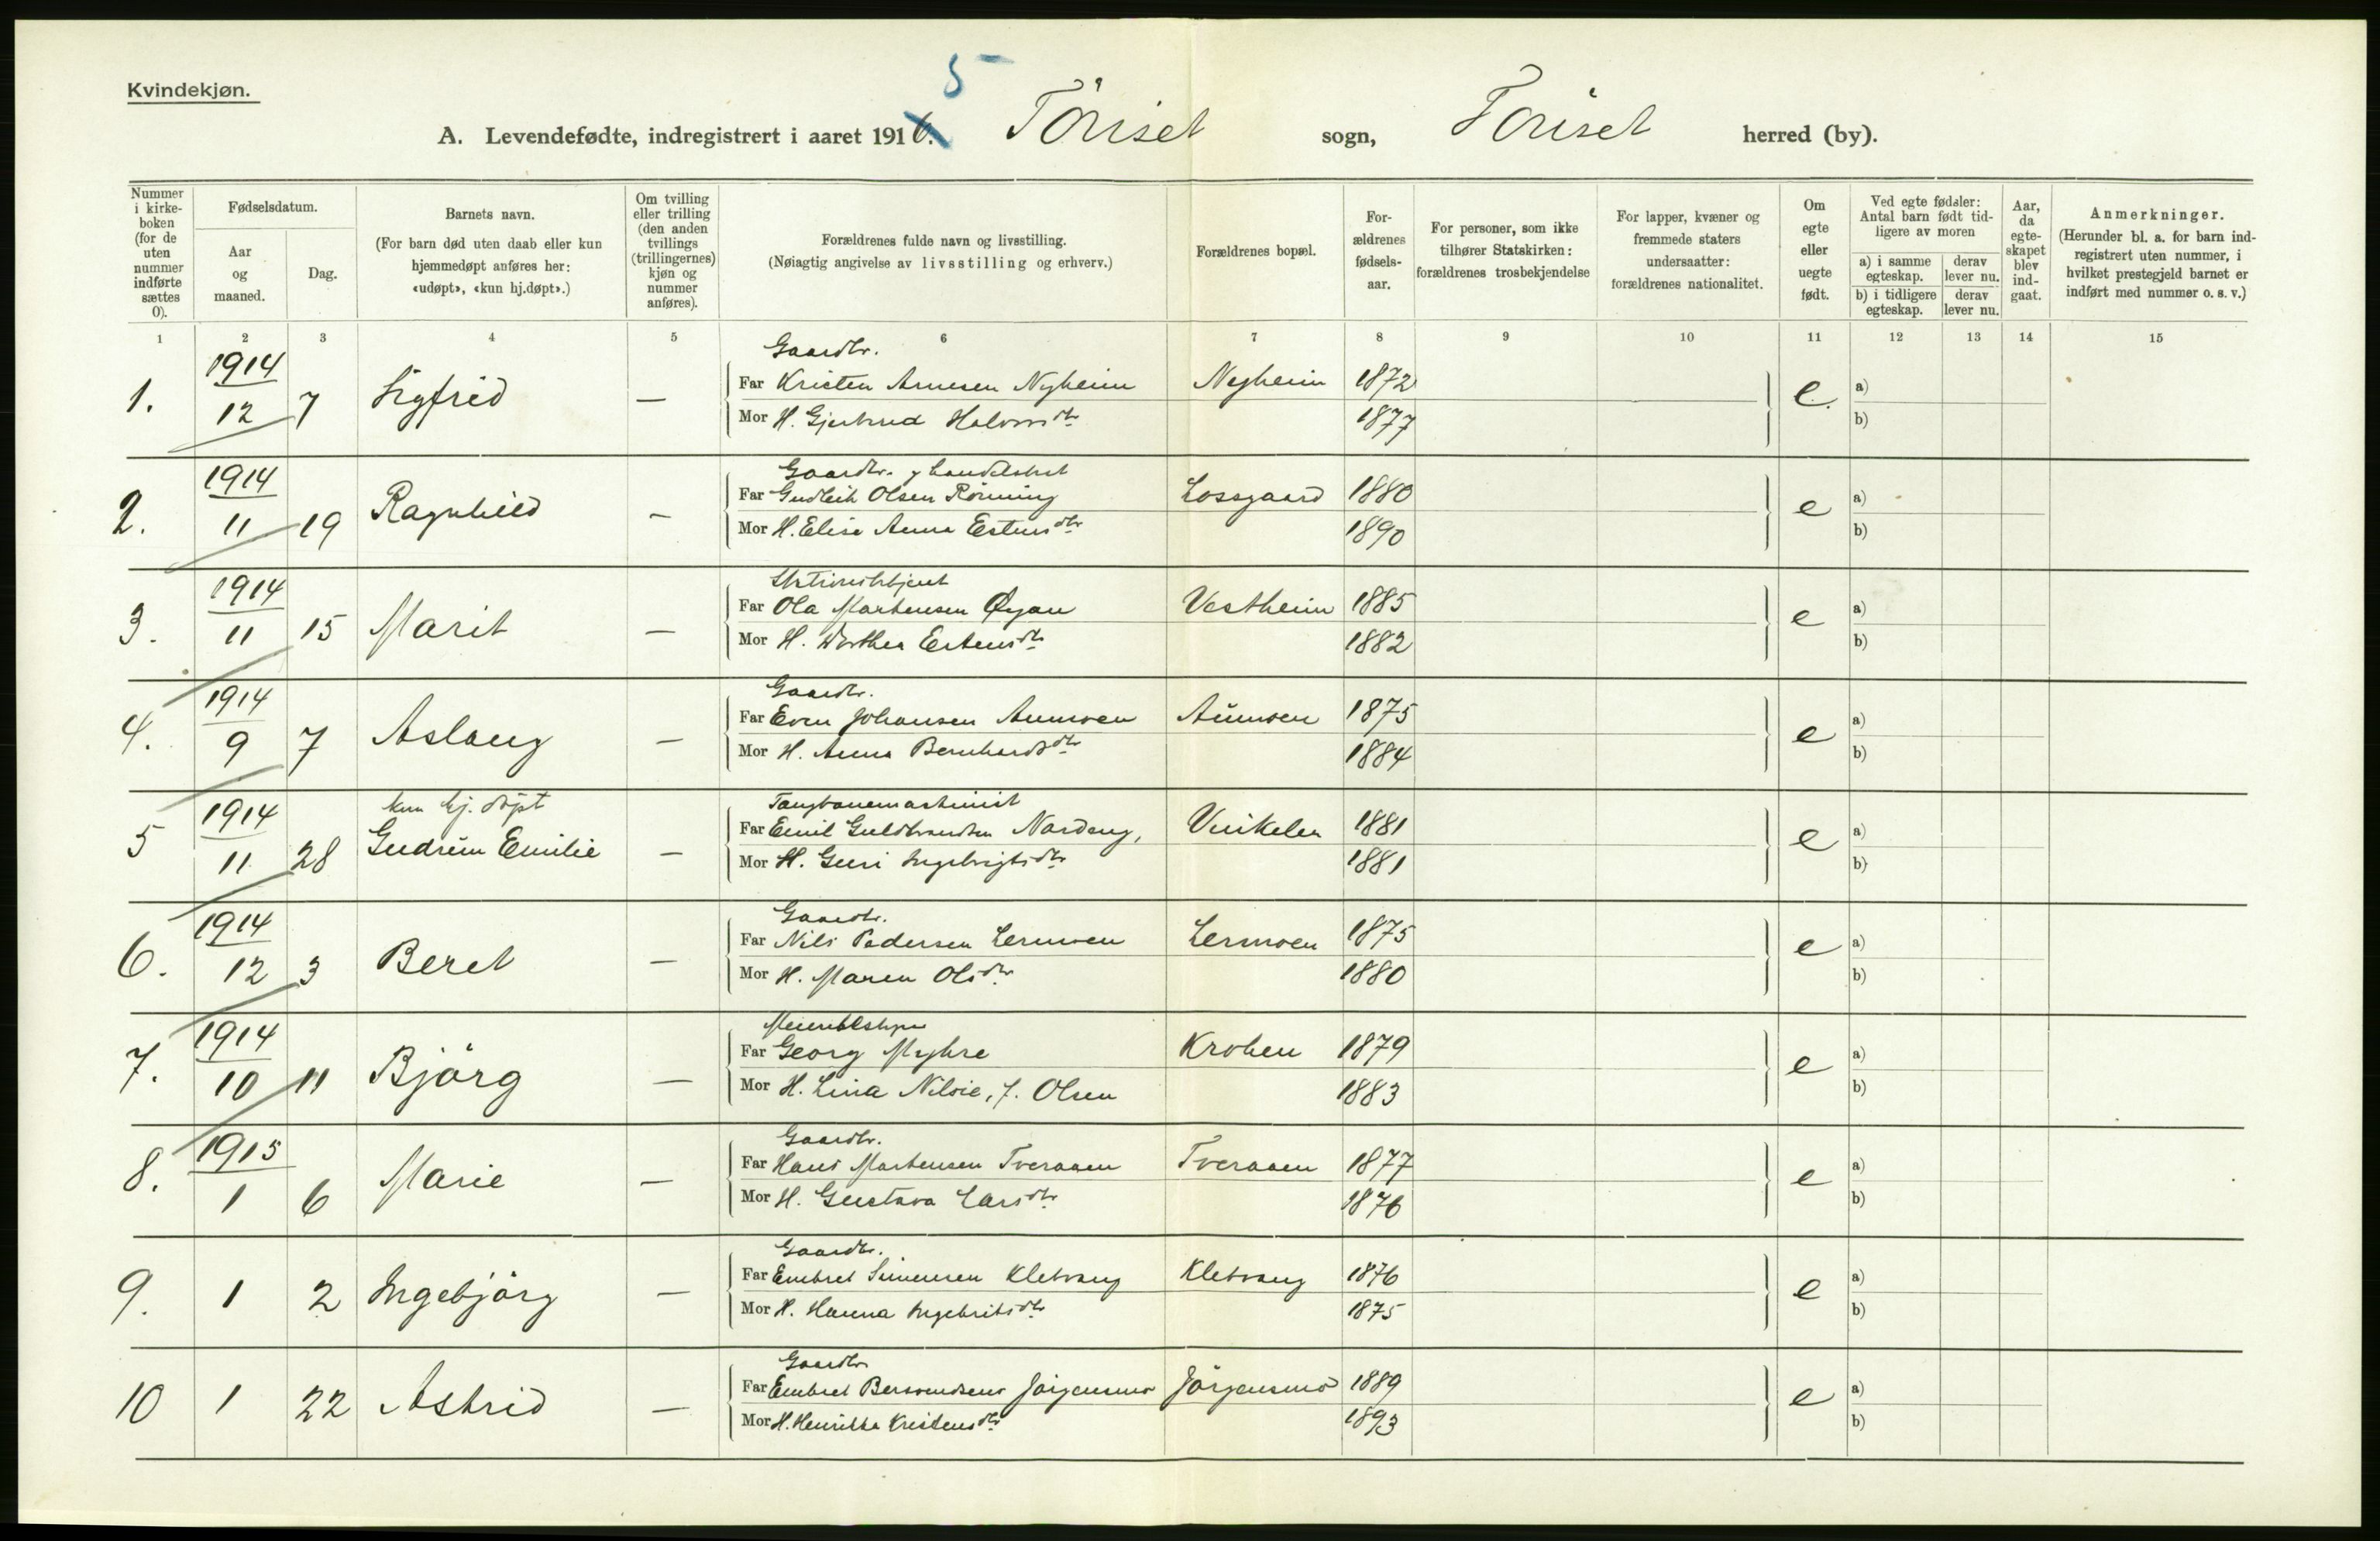 Kvindekjøn.
5
A. Levendefødte, indregistrert i aaret 1916. Töriset sogn, Töriset herred (by).
Nummer i kirkeboken (for de uten nummer indførte sættes 0).
Fødselsdatum.
Aar og maaned.
Dag.
Barnets navn.
(For barn død uten daab eller kun hjemmedøpt anføres her: «udøpt», «kun hj.døpt».)
Om tvilling eller trilling (den anden tvillings (trillingernes) kjøn og nummer anføres).
Forældrenes fulde navn og livsstilling.
(Nøiagtig angivelse av livsstilling og erhverv.)
Forældrenes bopæl.
Forældrenes fødselsaar.
For personer, som ikke tilhører Statskirken: forældrenes trosbekjendelse
For lapper, kvæner og fremmede staters undersaatter: forældrenes nationalitet.
Om egte eller uegte født.
Ved egte fødsler: Antal barn født tidligere av moren
a) i samme egteskap.
derav lever nu.
b) i tidligere egteskap.
derav lever nu.
Aar, da egteskapet blev indgaat.
Anmerkninger.
(Herunder bl. a. for barn indregistrert uten nummer, i hvilket prestegjeld barnet er indført med nummer o. s. v.)
1 2 3 4 5 6 7 8 9 10 11 12 13 14 15
Gaardbr.
1. 1914 12 7 Sigfrid — Far Kristen Arnesen Nyheim Nyheim 1872 e. a)
Mor H. Gjertrud Halvorsdtr. 1877 b)
Gaardbr. og
2. 1914 11 19 Ragnhild — Far Gudleik Olsen Rönning Lossgaard 1880 e a)
Mor H. Elise Anna Estensdtr 1890 b)
Stationsbetjent
3. 1914 11 15 Marit — Far Ola Martensen Øyan Vestheim 1885 e a)
Mor H. Dorthea Estensdtr. 1882 b)
Gaardbr.
4. 1914 9 7 Aslaug — Far Even Johansen Aunmoen Aunmoen 1875 e a)
Mor H. Anna Bernhardsdtr 1884 b)
kun hj. döpt
Taugbanemaskinist
5 1914 11 28 Gudrun Emilie — Far Emil Guldbrandsen Nordeng, Vinkelen 1881 e a)
Mor H. Guri Ingebrigtsdtr 1881 b)
Gaardbr.
6. 1914 12 3 Beret — Far Nils Pedersen Lermoen Lermoen 1875 e a)
Mor H. Maren Olsdtr. 1880 b)
Meieribestyrer
7. 1914 10 11 Björg — Far Georg Myhre Krohen 1879 e a)
Mor H. Lina Nilsie, f. Olsen 1883 b)
Gaardbr.
8. 1915 1 6 Marie — Far Hans Martensen Tveraaen Tveraaen 1877 e a)
Mor H. Gustava Larsdtr. 1876 b)
Gaardbr.
9. 1 2 Ingebjörg — Far Embret Simensen Kletvang Kletvang 1876 e a)
Mor H. Hanna Ingebritsdtr. 1875 b)
Gaardbr
10 1 22 Astrid — Far Embret Bersvendsen Jörgensmo Jörgensmo 1889 e a)
Mor H. Henrikka Kristensdtr. 1893 b)